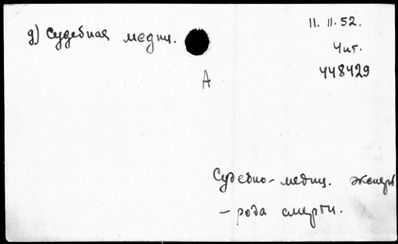 д) Судебная медиц.
11. II. 52.
Чит.
448429
А
Судебно-медиц. экспер
- рода смерти.